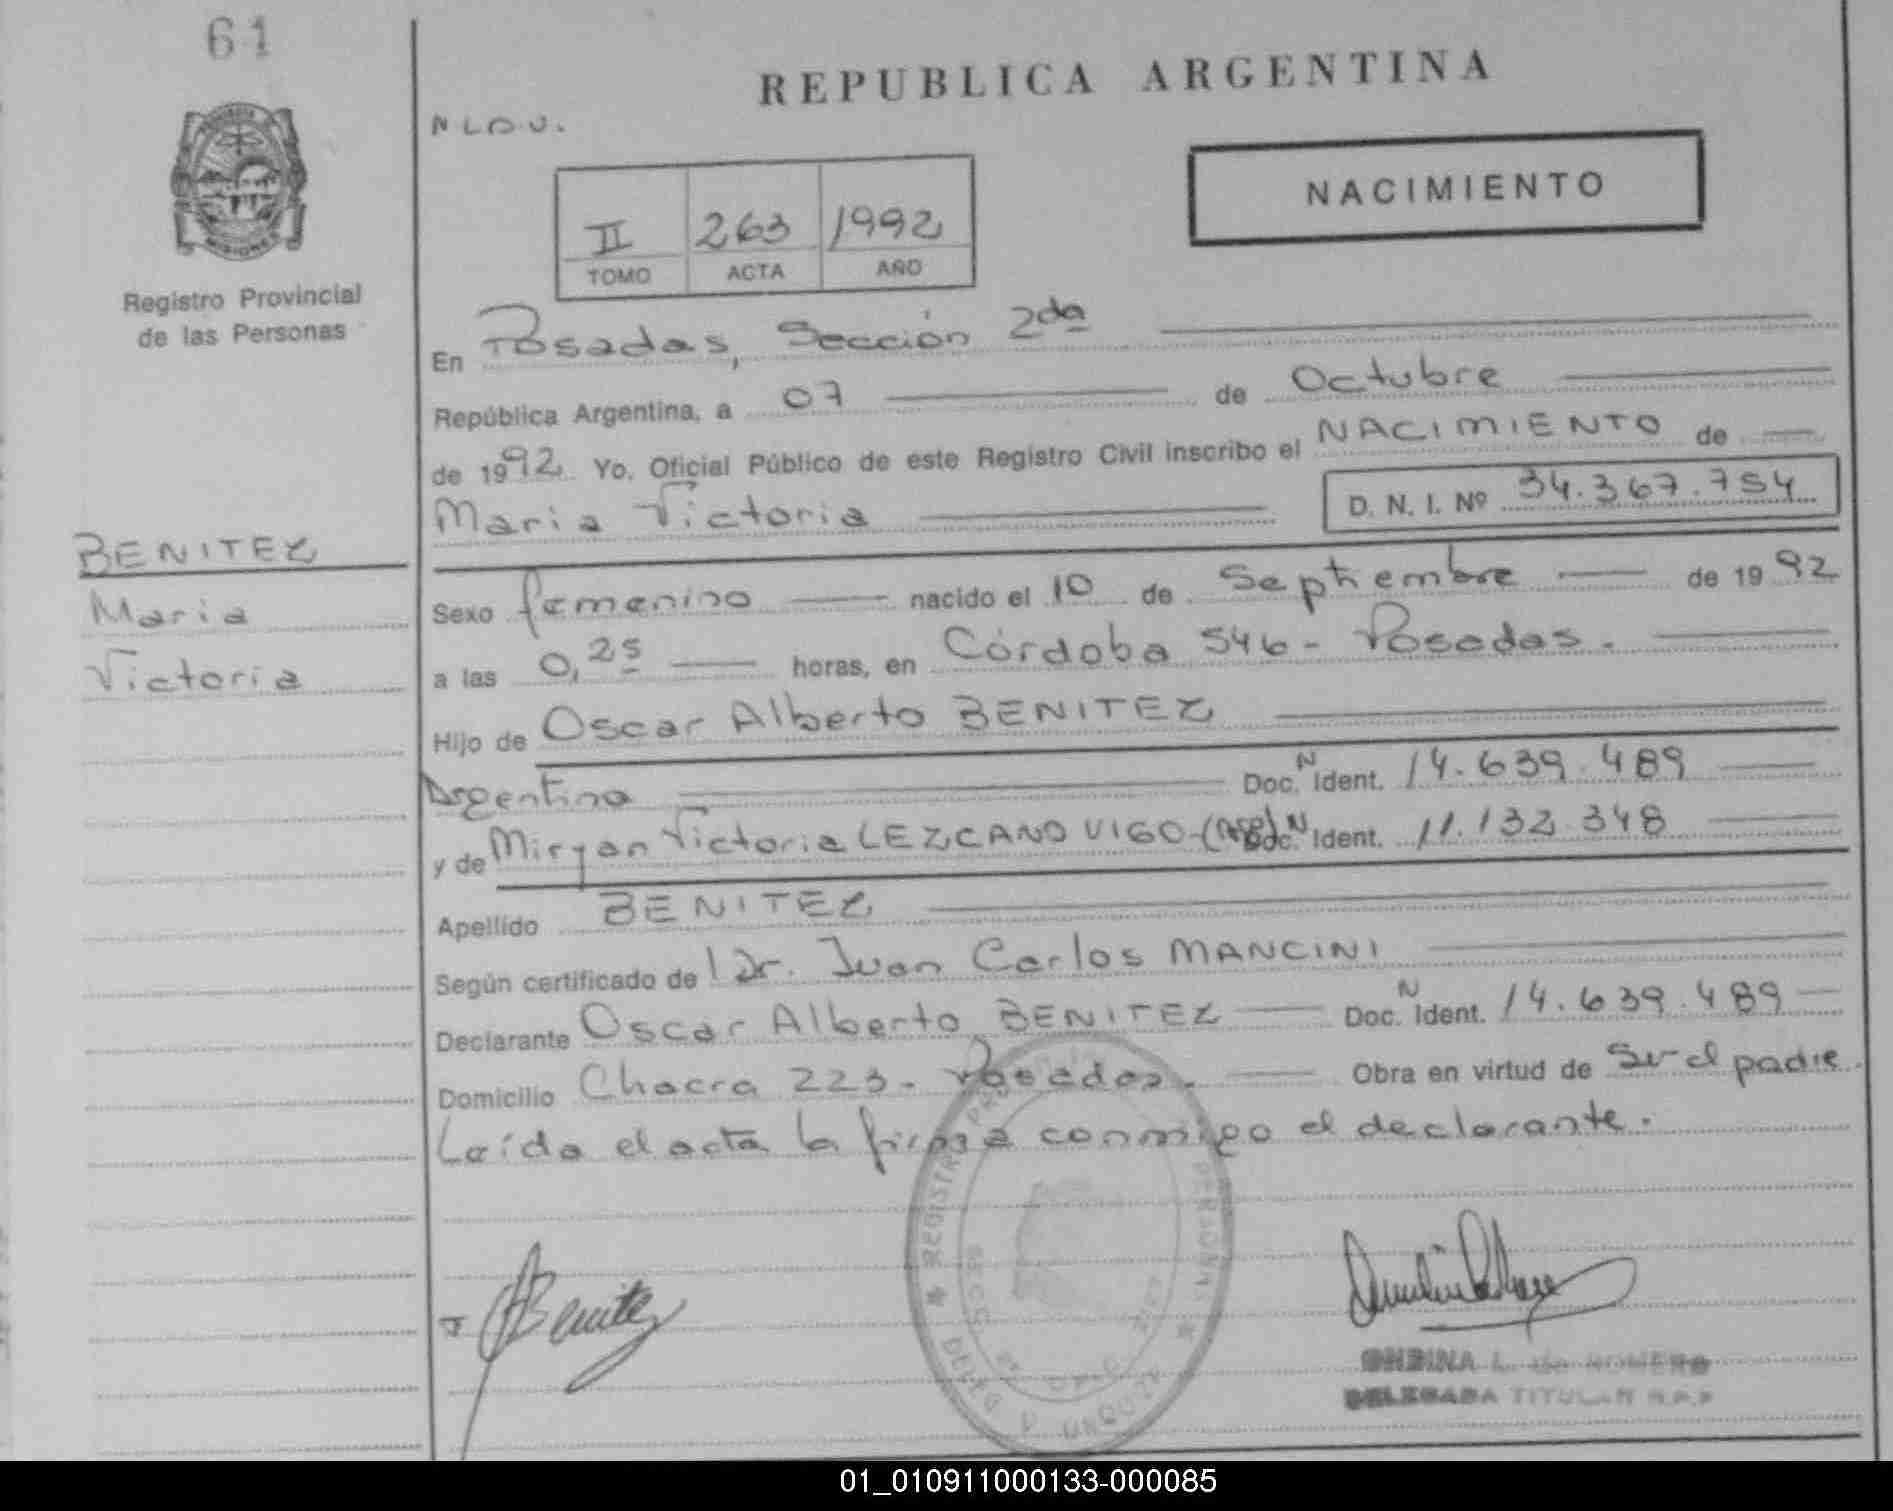 61
REPUBLICA ARGENTINA
N L D U.
NACIMIENTO
II 263 1992
TOMO ACTA AÑO
MISIONES
Registro Provincial
de las Personas
En Posadas, Sección 2da
República Argentina, a 07 de Octubre
de 1992 Yo, Oficial Público de este Registro Civil inscribo el NACIMIENTO de
Maria Victoria D. N. I. Nº 34.367.754
BENITEZ
Maria
Victoria
Sexo femenino nacido el 10 de Septiembre de 1992
a las 0,25 horas, en Córdoba 546 - Posadas.
Hijo de Oscar Alberto BENITEZ
Argentino Doc. N Ident. 14.639.489
y de Miryan Victoria LEZCANO VIGO - (Arg) Doc. N Ident. 11.132.348
Apellido BENITEZ
Según certificado de Dr. Juan Carlos MANCINI
Declarante Oscar Alberto BENITEZ Doc. N Ident. 14.639.489
Domicilio Chacra 223 - Posadas. Obra en virtud de Ser el padre.
Leída el acta la firma conmigo el declarante.
Benitez
ONDINA L. de ROMERO
DELEGADA TITULAR R.P.P
01_010911000133-000085